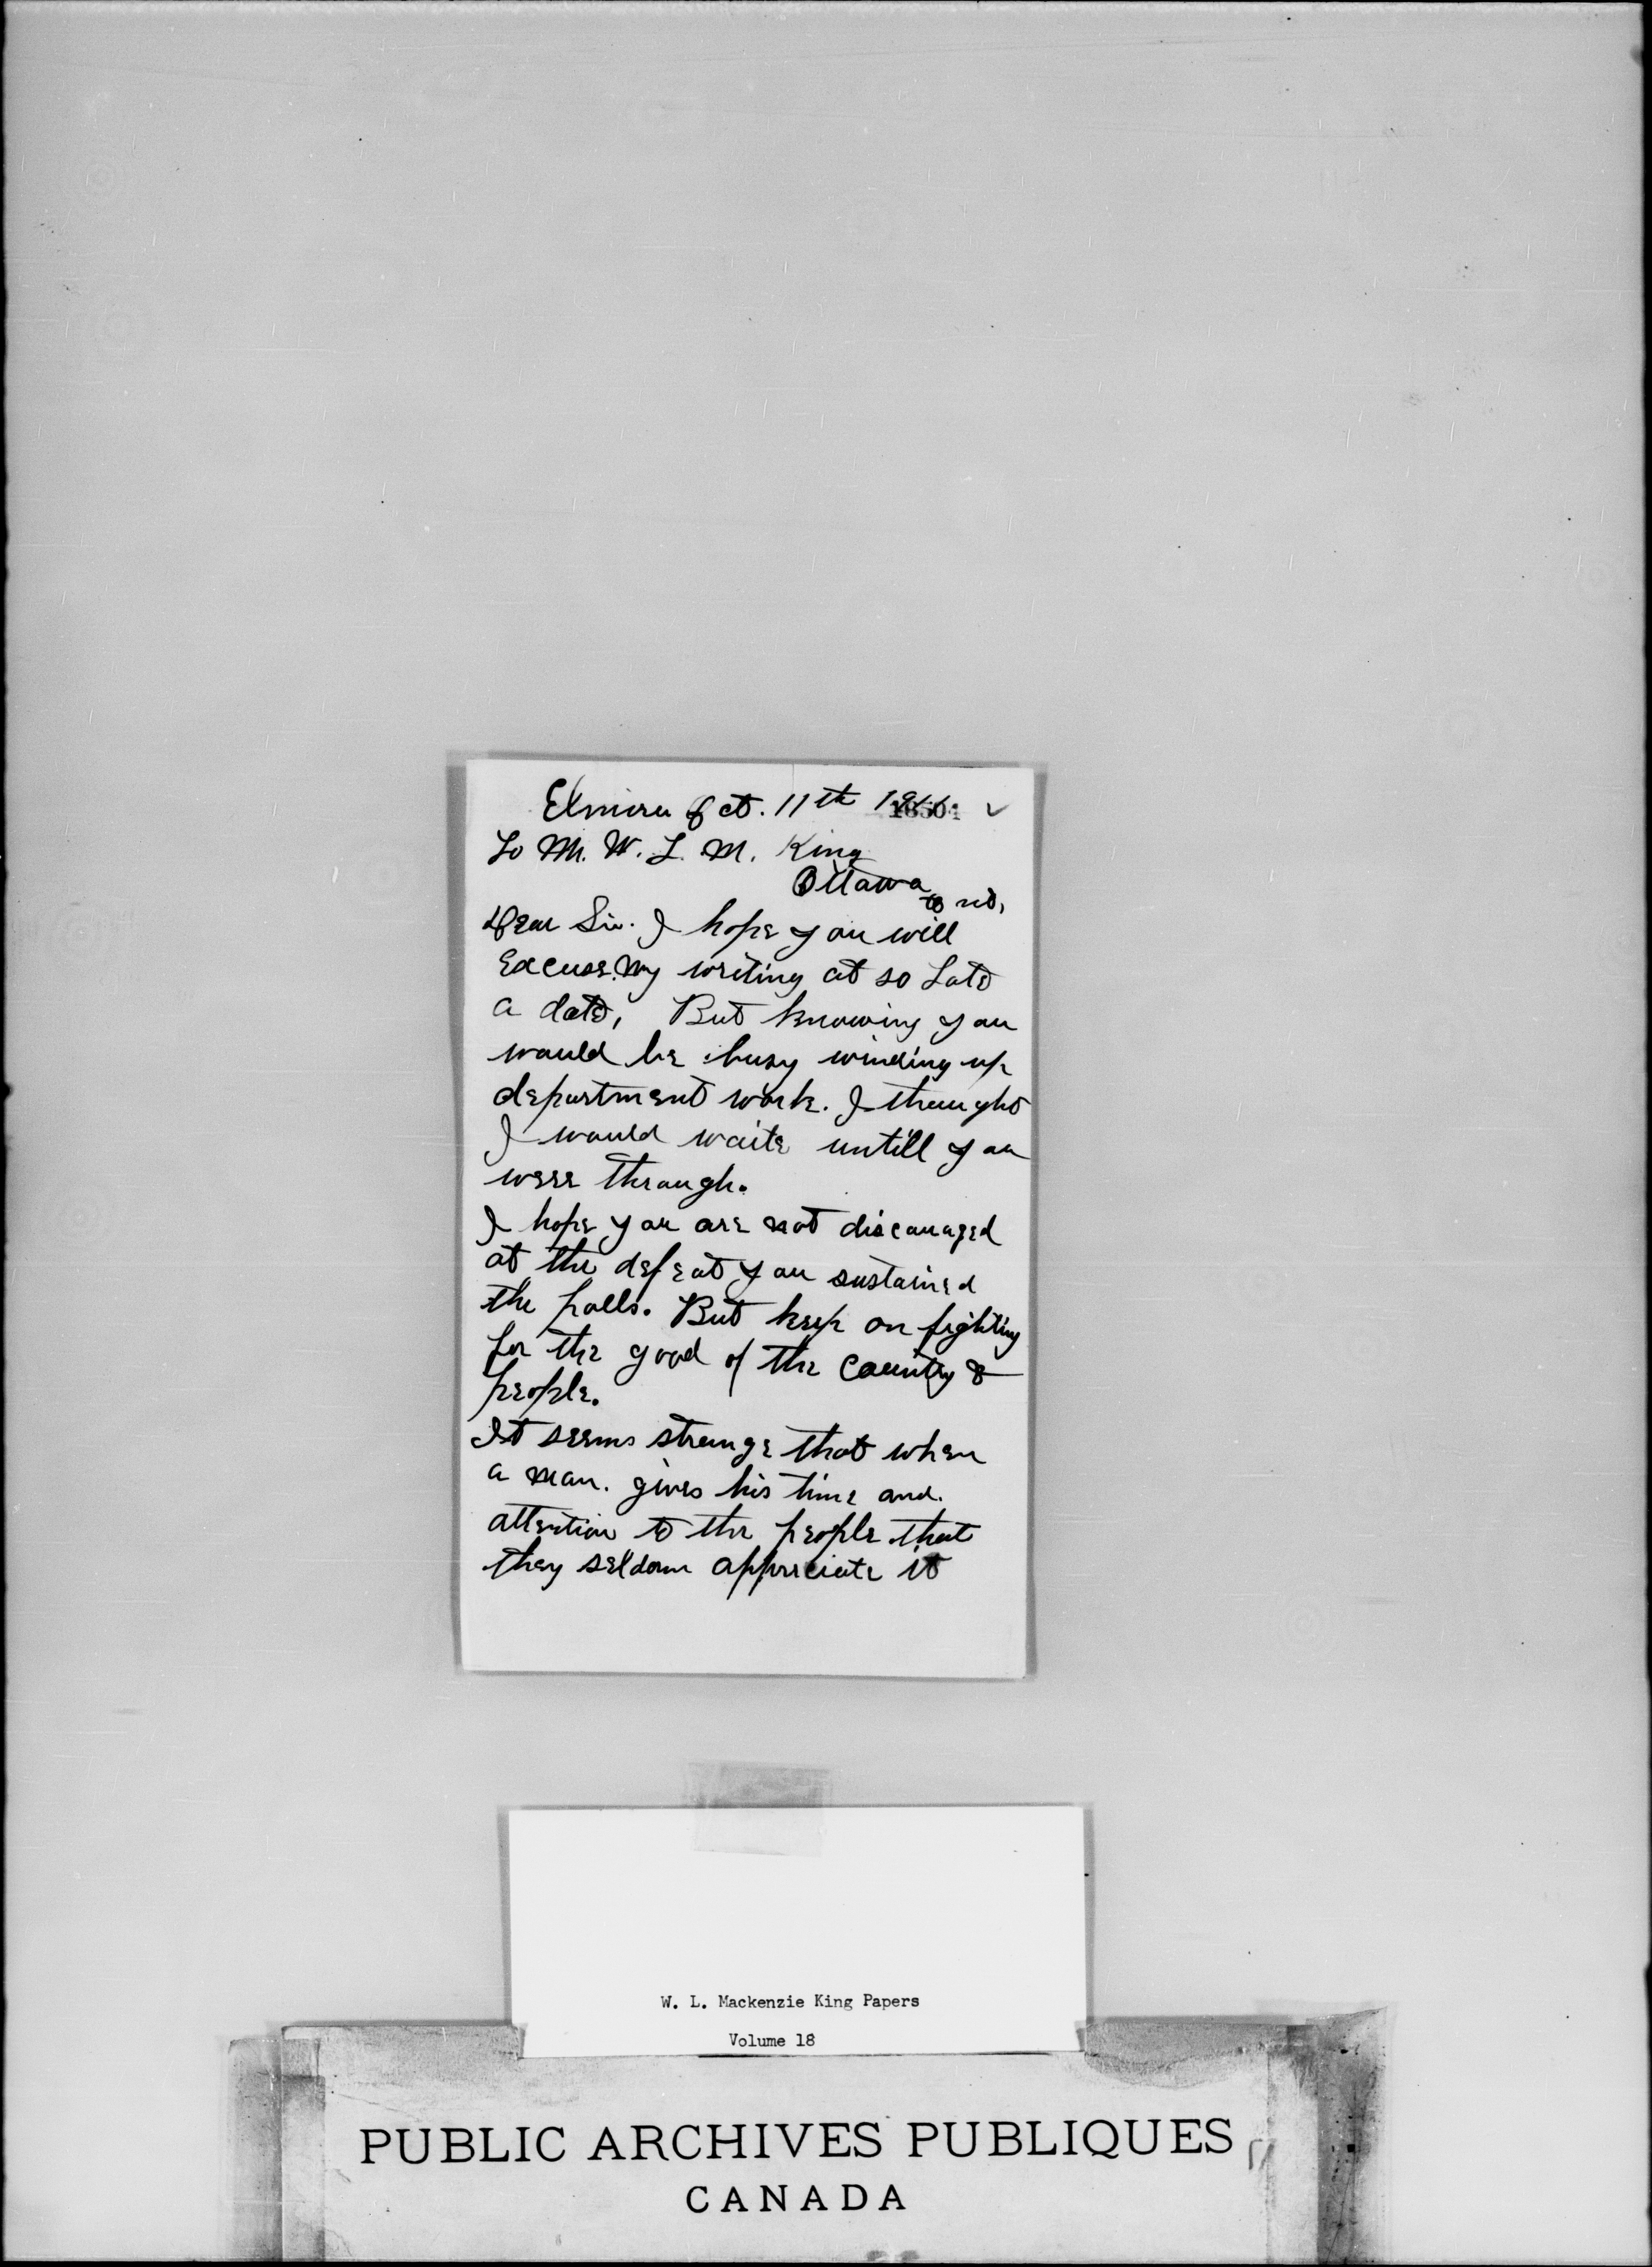 Elmira Oct. 11th 1911.
To M. W. L. M. King
Ottawa
Ont,
Dear Sir. I hope you will
Excuse. My writing at so Late
a date, But knowing you
would be busy winding up
department work. I thought
I would waite untill you
were through.
I hope you are not discouraged
at the defeat you sustained
the polls. But keep on fighting
for the good of the Country &
people.
It seems strange that when
a man. gives his time and.
attention to the people that
they seldom appreciate it
W. L. Mackenzie King Papers
Volume 18
PUBLIC ARCHIVES PUBLIQUES
CANADA